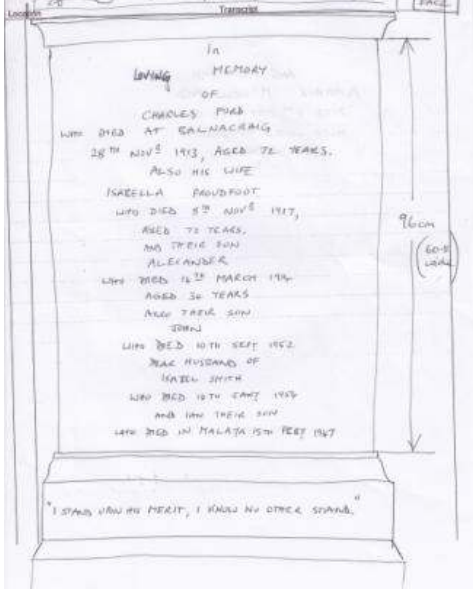 Location
Transcript
FACE
In
LOVING MEMORY
OF
CHARLES FORD
WHO DIED AT BALNACRAIG
28TH NOVR 1913, AGED 72 YEARS.
ALSO HIS WIFE
ISABELLA PROUDFOOT
WHO DIED 5TH NOVR 1917,
AGED 72 YEARS,
AND THEIR SON
ALEXANDER
WHO DIED 14TH MARCH
AGED 34 YEARS
ALSO THEIR SON
JOHN
WHO DIED 10TH SEPT 1952
DEAR HUSBAND OF
ISABEL SMITH
WHO DIED 10TH 1954
AND IAN THEIR SON
WHO DIED IN MALAYA 15TH 1947
96cm
wide
"I STAND UPON HIS MERIT, I KNOW NO OTHER STAND."